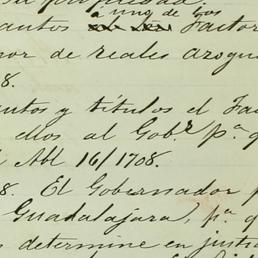 su propiedad
a uno de los
autos Factor
or de reales azogue
8.
utos y títulos el Fa
ellos al Gobr pa q
Abl 16/1708.
8. El Gobernador p
Guadalajara, pa q
determine en justi